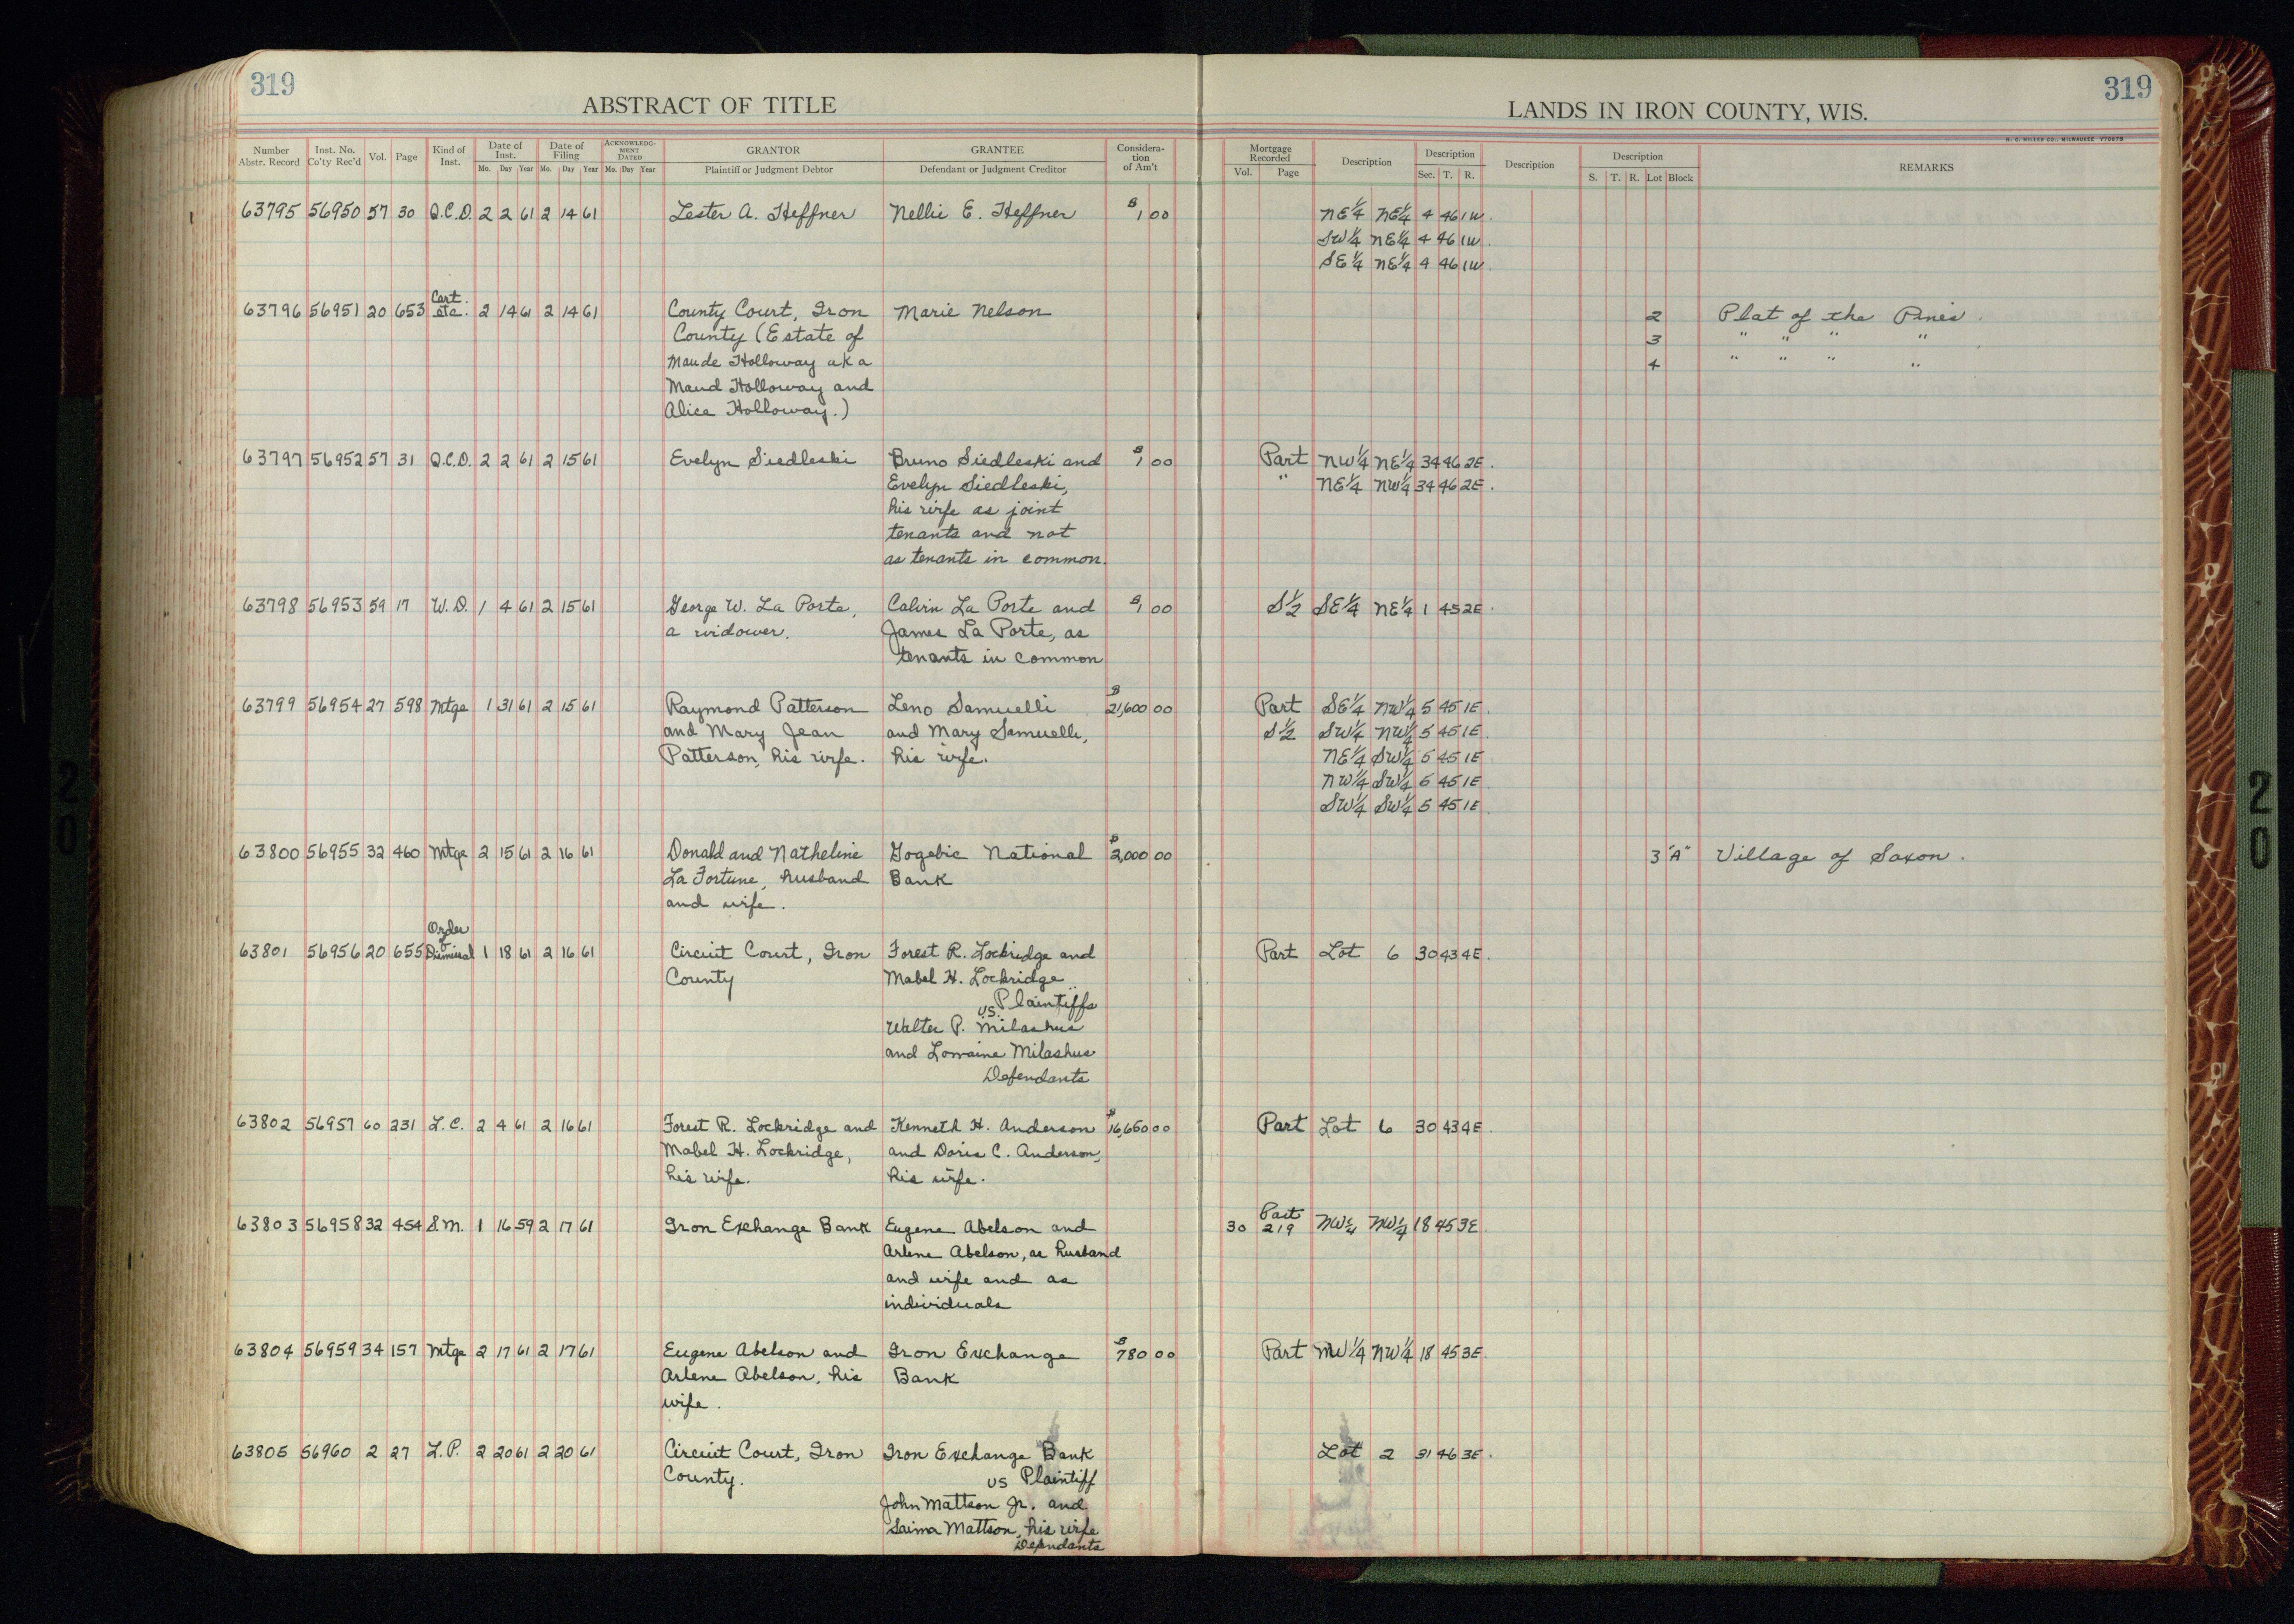 319
ABSTRACT OF TITLE
319
LANDS IN IRON COUNTY, WIS.
H. C. MILLER CO., MILWAUKEE
Number Abstr. Record | Inst. No. Co'ty Rec'd | Vol. | Page | Kind of Inst. | Date of Inst. Mo. Day Year | Date of Filing Mo. Day Year | ACKNOWLEDGMENT DATED Mo. Day Year | GRANTOR Plaintiff or Judgment Debtor | GRANTEE Defendant or Judgment Creditor | Consideration of Am't | Mortgage Recorded Vol. Page | Description | Description Sec. T. R. | Description | Description S. T. R. Lot Block | REMARKS
63795 56950 57 30 Q.C.D. 2 2 61 2 14 61 Lester A. Heffner Nellie E. Heffner $1 00 NE¼ NE¼ 4 46 1W.
SW¼ NE¼ 4 46 1W.
SE¼ NE¼ 4 46 1W.
Cert.
63796 56951 20 653 etc. 2 14 61 2 14 61 County Court, Iron Marie Nelson 2 Plat of the Pines.
County (Estate of 3 " " " "
Maude Holloway aka 4 " " " "
Maud Holloway and
Alice Holloway.)
63797 56952 57 31 Q.C.D. 2 2 61 2 15 61 Evelyn Siedleski Bruno Siedleski and $1 00 Part NW¼ NE¼ 34 46 2E.
Evelyn Siedleski, " NE¼ NW¼ 34 46 2E.
his wife as joint
tenants and not
as tenants in common.
63798 56953 59 17 W.D. 1 4 61 2 15 61 George W. La Porte, Calvin La Porte and $1 00 S½ SE¼ NE¼ 1 45 2E.
a widower. James La Porte, as
tenants in common
63799 56954 27 598 Mtge 1 31 61 2 15 61 Raymond Patterson Leno Samuelli $21,600 00 Part SE¼ NW¼ 5 45 1E.
and Mary Jean and Mary Samuelli, S½ SW¼ NW¼ 5 45 1E.
Patterson, his wife. his wife. NE¼ SW¼ 5 45 1E
NW¼ SW¼ 5 45 1E.
SW¼ SW¼ 5 45 1E.
63800 56955 32 460 Mtge 2 15 61 2 16 61 Donald and Natheline Gogebic National $2,000 00 3 "A" Village of Saxon.
La Fortune, husband Bank
and wife.
Order
of
63801 56956 20 655 Dismissal 1 18 61 2 16 61 Circuit Court, Iron Forest R. Lockridge and Part Lot 6 30 43 4E.
County Mabel H. Lockridge
Plaintiffs
vs.
Walter P. Milashus
and Lorraine Milashus
Defendants
63802 56957 60 231 L.C. 2 4 61 2 16 61 Forest R. Lockridge and Kenneth H. Anderson $16,650 00 Part Lot 6 30 43 4E.
Mabel H. Lockridge, and Doris C. Anderson,
his wife. his wife.
63803 56958 32 454 S.M. 1 16 59 2 17 61 Iron Exchange Bank Eugene Abelson and 30 Part 219 NW¼ NW¼ 18 45 3E.
Arlene Abelson, as husband
and wife and as
individuals
63804 56959 34 157 Mtge 2 17 61 2 17 61 Eugene Abelson and Iron Exchange $780 00 Part NW¼ NW¼ 18 45 3E.
Arlene Abelson, his Bank
wife.
63805 56960 2 27 L.P. 2 20 61 2 20 61 Circuit Court, Iron Iron Exchange Bank Lot 2 31 46 3E.
County. vs Plaintiff
John Mattson Jr. and
Saima Mattson, his wife
Defendants
20
20